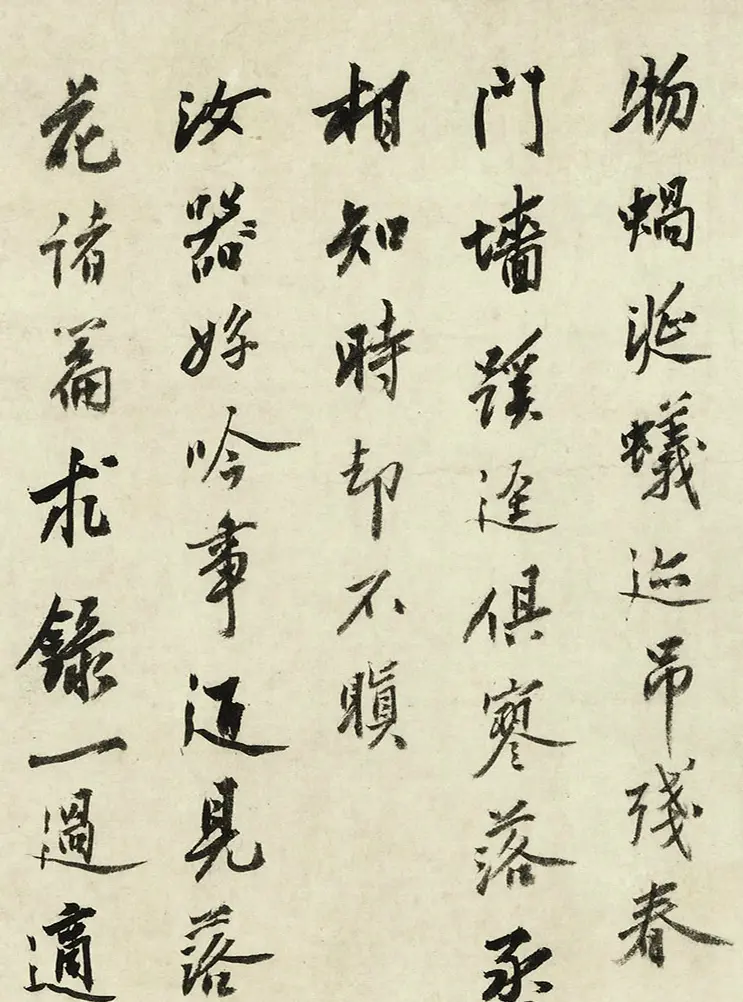 物蝸涎蟻迹吊殘春
門墻蹊逕俱寥落丞
相知時却不瞋
汝器好吟事近見落
花諸篇求錄一過適